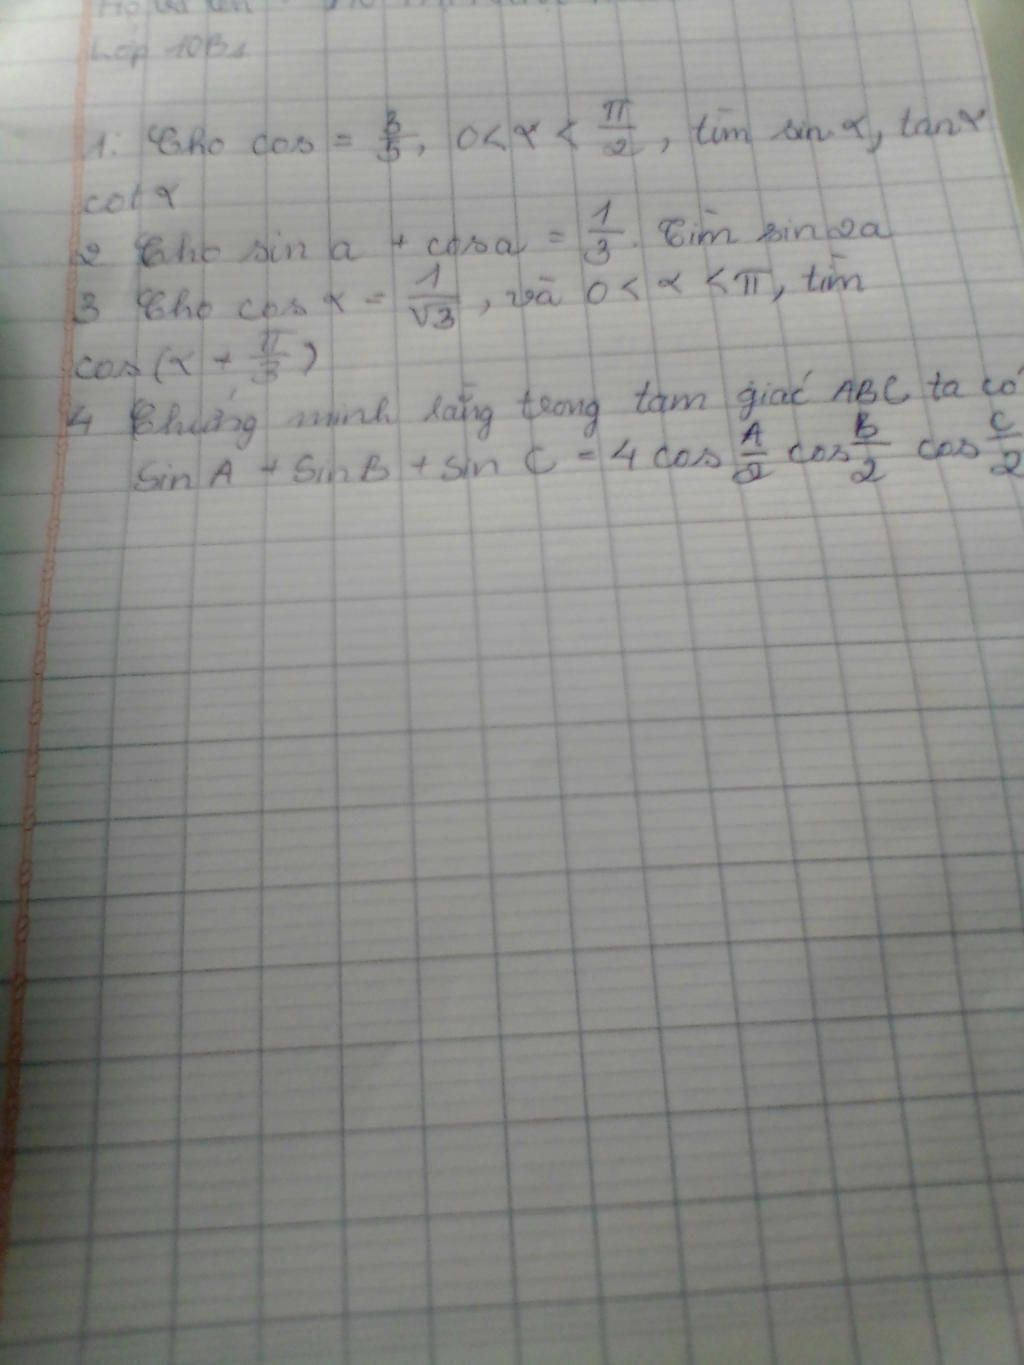 Lớp 10B1
1. Cho cos = 3/5, 0 < α < π/2, tìm sin α, tan α
cot α
2 Cho sin a + cosa = 1/3. Tìm sin2a
3 Cho cos α = 1/√3, và 0 < α < π, tìm
cos(α + π/3)
4 Chứng minh rằng trong tam giác ABC ta có
Sin A + Sin B + sin C = 4 cos A/2 cos B/2 cos C/2